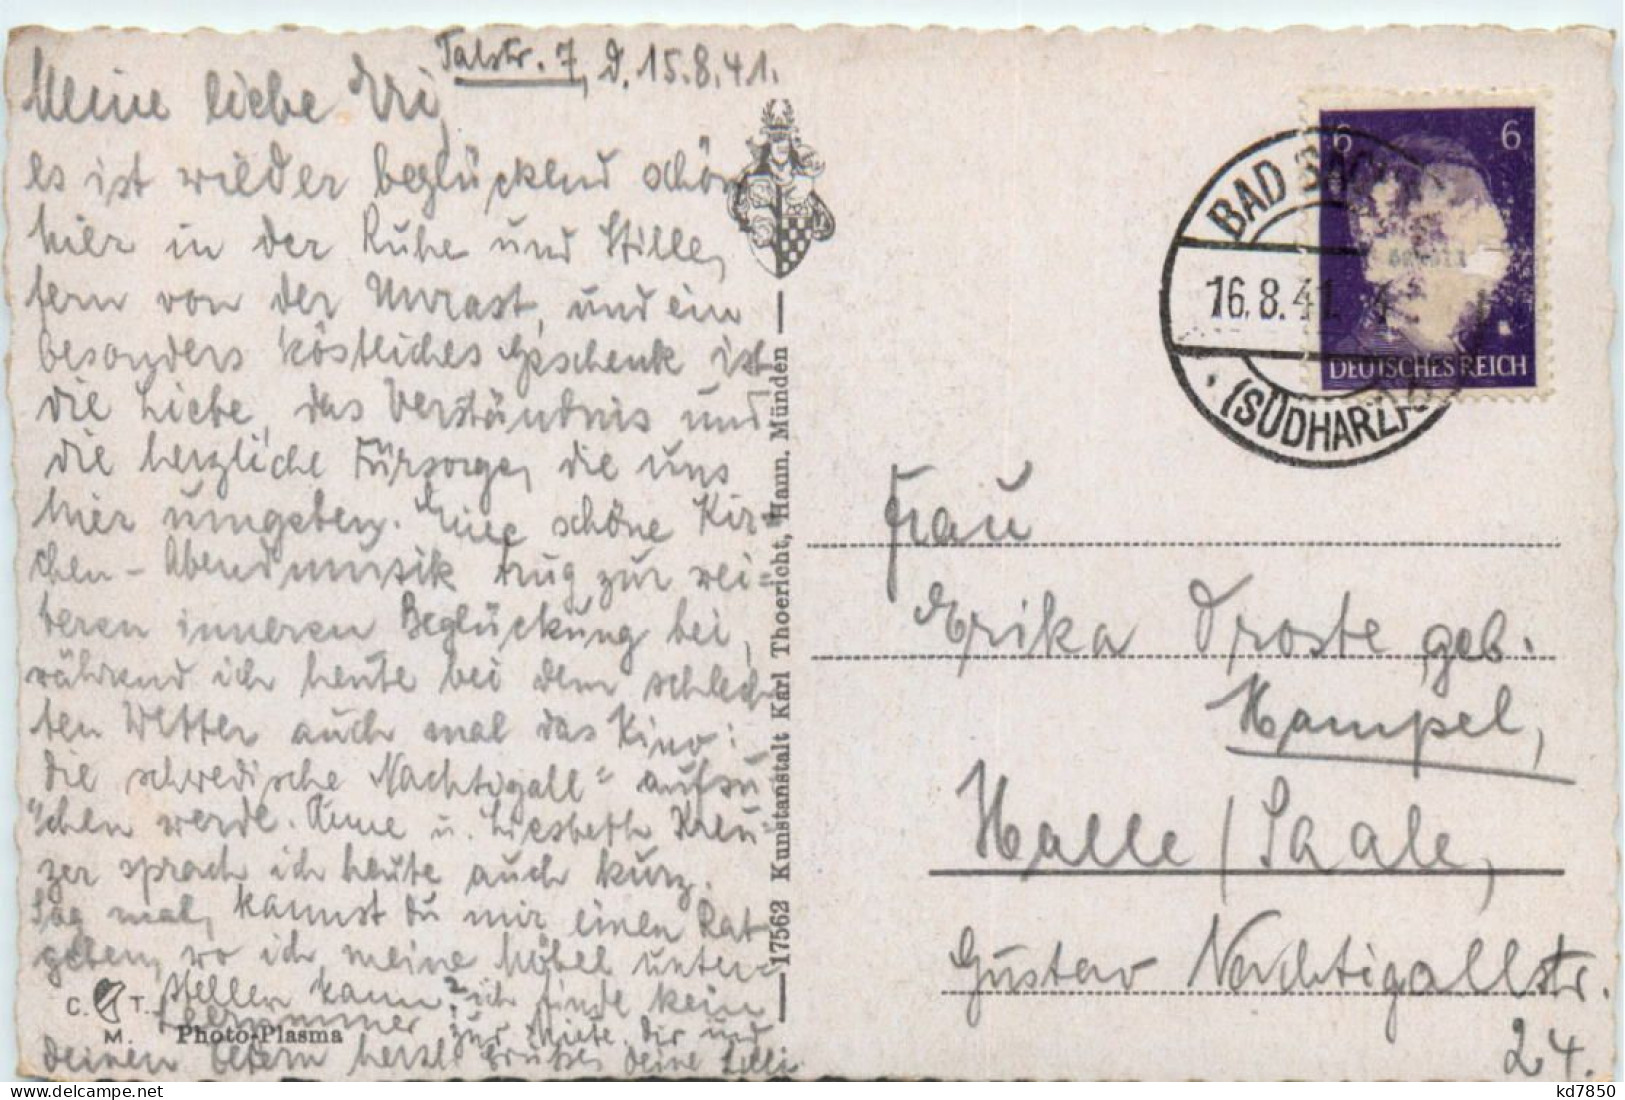 Talstr. 7, d. 15.8.41.
Meine liebe Eri,
es ist wieder beglückend schön
hier in der Ruhe und Stille,
fern von der Unrast, und ein
besonders köstliches Geschenk ist
die Liebe, das Verständnis und
die herzliche Fürsorge, die uns
hier umgeben. Eine schöne Kir-
chen-Abendmusik trug zur wei-
teren inneren Beglückung bei,
während ich heute bei dem schlech-
ten Wetter auch mal das Kino:
die schwedische Nachtigall" aufsu-
chen werde. Anne u. Liesbeth Kreu-
zer sprach ich heute auch kurz.
Sag mal, kannst du mir einen Rat
geben, wo ich meine Möbel unter-
stellen kann? ich finde kein
Leerzimmer zur Miete. Dir und
deinen Eltern herzl. Grüße, deine Lilli
C. T.
M.
Photo-Plasma
17562 Kunstanstalt Karl Thoericht, Hann. Münden
6 6
DEUTSCHES REICH
BAD
16.8.41.
(SÜDHARZ)
Frau
Erika Droste, geb.
Hampel,
Halle/Saale,
Gustav Nachtigallstr.
24.
kd7850